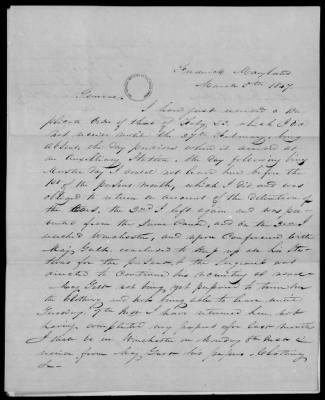 Frederick Maryland
March 5th 1847
General,
I have just received a Du-
plicate Order of that of Feby 23, which I did
not receive until the 27th February, being
absent the day previous when it arrived at
an Auxilliary Station. the day following being
Muster day I could not leave here before the
1st of the present month, which I did and was
obliged to return on account of the detention of
the Cars, the 2nd I left again and was
from the same cause, and on the 3rd I
reached Winchester, and upon Conferring with
Maj. concluded to keep up the Sta-
tions for the present, & the Sergeant was
directed to continue his recruiting at once
Maj. not being yet prepared to turn in
the Clothing and not being able to leave until
Tuesday 9th Inst I have returned here not
having completed my papers for last month
I shall be in Winchester on Monday 8th Inst &
receive from Maj. his papers Clothing
&c